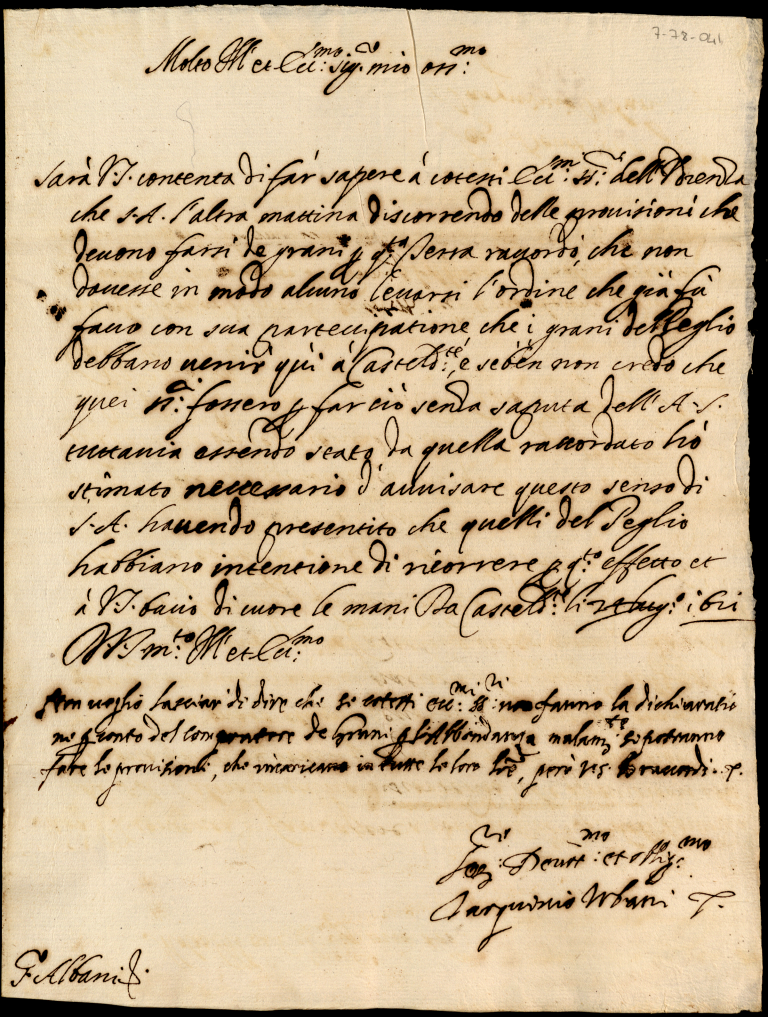 7-78-041
Molto Ill.re et Ecc.mo sig.r mio oss.mo
Sarà V.S. contenta di far sapere à cotesti Ecc.mi ss.ri dell'Udienza
che S.A. l'altra mattina discorrendo delle provisioni che
devono farsi de grani p q.ta Terra raccordò, che non
dovesse in modo alcuno levarsi l'ordine che già fù
fatto con sua partecipatione che i grani del Peglio
debbano venir quì à Casteld.te, e sebèn non credo che
quei ss.ri fossero p far ciò senza saputa dell'A.S.
tuttavia essendo stato da quella raccordato hò
stimato necessario d'avvisare questo senso di
S.A. havendo presentito che quelli del Peglio
habbiano intentione di ricorrere p q.to effetto et
à V.S. bacio di cuore le mani Da Casteld.te li 24 lug.o 1621
D V.S. m.to Ill.re et Ecc.mo
Non voglio lasciar di dire che se cotesti ecc.mi ss.ri non fanno la dichiaratio
ne p conto del compratore de Grani p l'Abbondanza malam.te se potranno
fare le provisioni, che incaricano in tutte le loro l're, però V.S. lo raccordi.
Ser.re Devot.mo et oblig.mo
Tarquinio Urbani
F. Albani